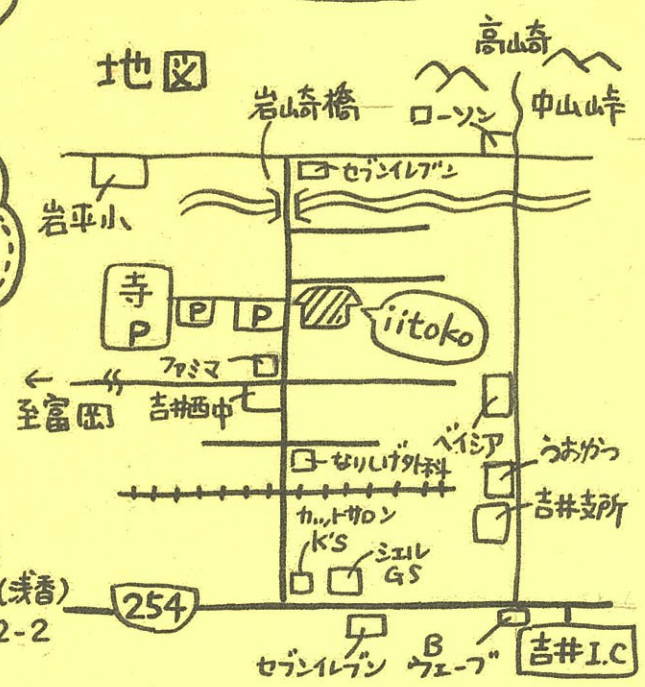 地図
高崎
岩崎橋
ローソン
中山峠
セブンイレブン
岩平小
寺
P
P
P
iitoko
ファミマ
←
至富岡
吉井西中
ベイシア
うおかつ
なりしげ外科
吉井支所
カットサロン
K'S
シェル
GS
(浅香)
2-2
254
セブンイレブン
B
ウェーブ
吉井I.C